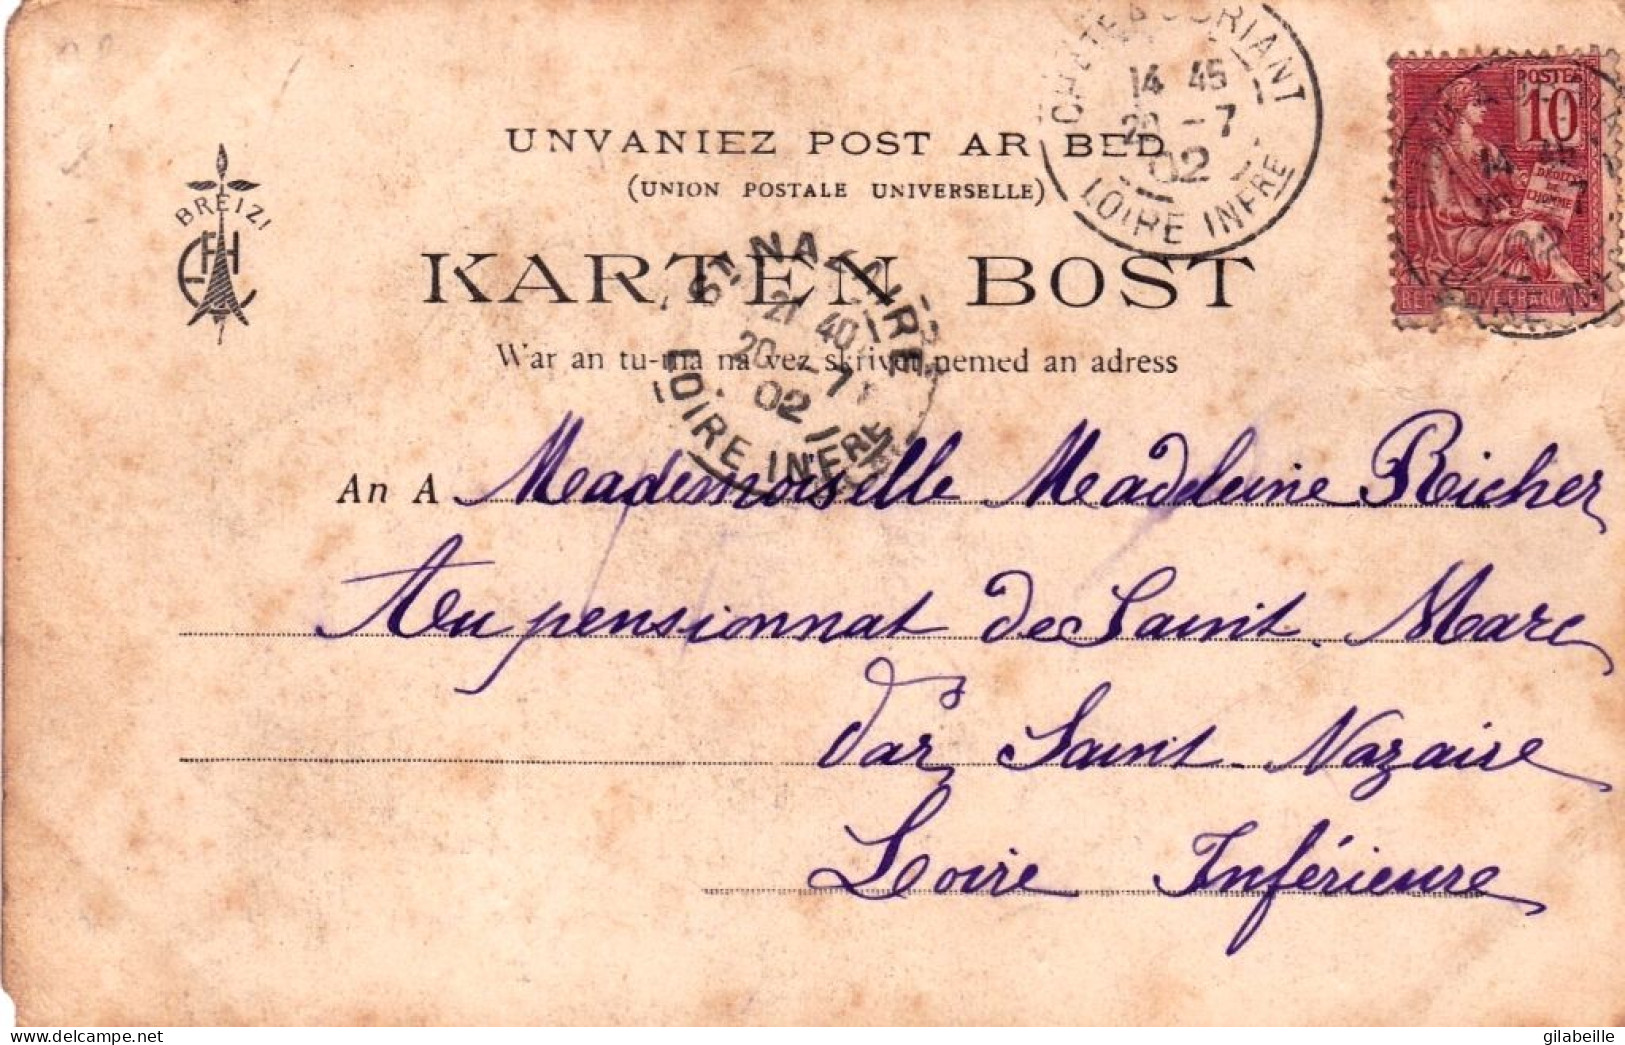 UNVANIEZ POST AR BED
(UNION POSTALE UNIVERSELLE)
BREIZI
KARTEN BOST
War an tu-ma na vez skrivet nemed an adress
CHATEAUBRIANT
14 45
20 - 7
02
LOIRE INFRE
POSTES
10
DROITS
DE
L'HOMME
REPUBLIQUE FRANÇAISE
ST NAZAIRE
21 40
20 - 7
02
LOIRE INFRE
An A Mademoiselle Madeleine Richer
Au pensionnat de Saint Marc
par Saint-Nazaire
Loire Inférieure
gilabeille